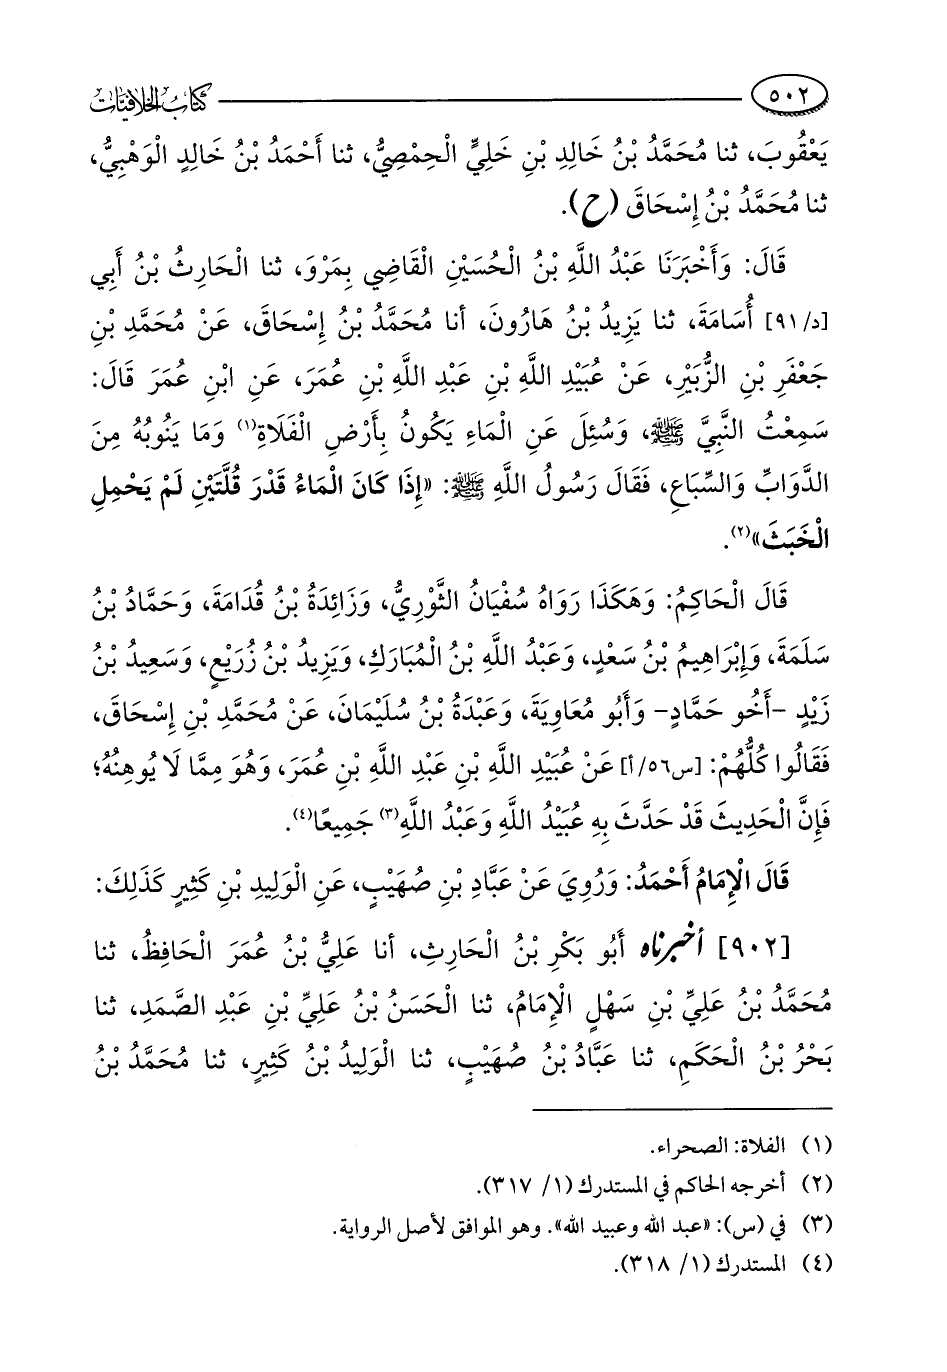 ٥٠٢ كتاب الخلافيات
يَعْقُوبَ، ثنا مُحَمَّدُ بْنُ خَالِدِ بْنِ خَلِيٍّ الْحِمْصِيُّ، ثنا أَحْمَدُ بْنُ خَالِدٍ الْوَهْبِيُّ،
ثنا مُحَمَّدُ بْنُ إِسْحَاقَ (ح).
قَالَ: وَأَخْبَرَنَا عَبْدُ اللَّهِ بْنُ الْحُسَيْنِ الْقَاضِي بِمَرْوَ، ثنا الْحَارِثُ بْنُ أَبِي
[د/٩١] أُسَامَةَ، ثنا يَزِيدُ بْنُ هَارُونَ، أنا مُحَمَّدُ بْنُ إِسْحَاقَ، عَنْ مُحَمَّدِ بْنِ
جَعْفَرِ بْنِ الزُّبَيْرِ، عَنْ عُبَيْدِ اللَّهِ بْنِ عَبْدِ اللَّهِ بْنِ عُمَرَ، عَنِ ابْنِ عُمَرَ قَالَ:
سَمِعْتُ النَّبِيَّ ﷺ، وَسُئِلَ عَنِ الْمَاءِ يَكُونُ بِأَرْضِ الْفَلَاةِ(١) وَمَا يَنُوبُهُ مِنَ
الدَّوَابِّ وَالسِّبَاعِ، فَقَالَ رَسُولُ اللَّهِ ﷺ: «إِذَا كَانَ الْمَاءُ قَدْرَ قُلَّتَيْنِ لَمْ يَحْمِلِ
الْخَبَثَ»(٢).
قَالَ الْحَاكِمُ: وَهَكَذَا رَوَاهُ سُفْيَانُ الثَّوْرِيُّ، وَزَائِدَةُ بْنُ قُدَامَةَ، وَحَمَّادُ بْنُ
سَلَمَةَ، وَإِبْرَاهِيمُ بْنُ سَعْدٍ، وَعَبْدُ اللَّهِ بْنُ الْمُبَارَكِ، وَيَزِيدُ بْنُ زُرَيْعٍ، وَسَعِيدُ بْنُ
زَيْدٍ -أَخُو حَمَّادٍ- وَأَبُو مُعَاوِيَةَ، وَعَبْدَةُ بْنُ سُلَيْمَانَ، عَنْ مُحَمَّدِ بْنِ إِسْحَاقَ،
فَقَالُوا كُلُّهُمْ: [س٥٦/أ] عَنْ عُبَيْدِ اللَّهِ بْنِ عَبْدِ اللَّهِ بْنِ عُمَرَ، وَهُوَ مِمَّا لَا يُوهِنُهُ؛
فَإِنَّ الْحَدِيثَ قَدْ حَدَّثَ بِهِ عُبَيْدُ اللَّهِ وَعَبْدُ اللَّهِ(٣) جَمِيعًا(٤).
قَالَ الْإِمَامُ أَحْمَدُ: وَرُوِيَ عَنْ عَبَّادِ بْنِ صُهَيْبٍ، عَنِ الْوَلِيدِ بْنِ كَثِيرٍ كَذَلِكَ:
[٩٠٢] أخبرناه أَبُو بَكْرِ بْنُ الْحَارِثِ، أنا عَلِيُّ بْنُ عُمَرَ الْحَافِظُ، ثنا
مُحَمَّدُ بْنُ عَلِيِّ بْنِ سَهْلٍ الْإِمَامُ، ثنا الْحَسَنُ بْنُ عَلِيِّ بْنِ عَبْدِ الصَّمَدِ، ثنا
بَحْرُ بْنُ الْحَكَمِ، ثنا عَبَّادُ بْنُ صُهَيْبٍ، ثنا الْوَلِيدُ بْنُ كَثِيرٍ، ثنا مُحَمَّدُ بْنُ
(١) الفلاة: الصحراء.
(٢) أخرجه الحاكم في المستدرك (١/ ٣١٧).
(٣) في (س): «عبد الله وعبيد الله». وهو الموافق لأصل الرواية.
(٤) المستدرك (١/ ٣١٨).